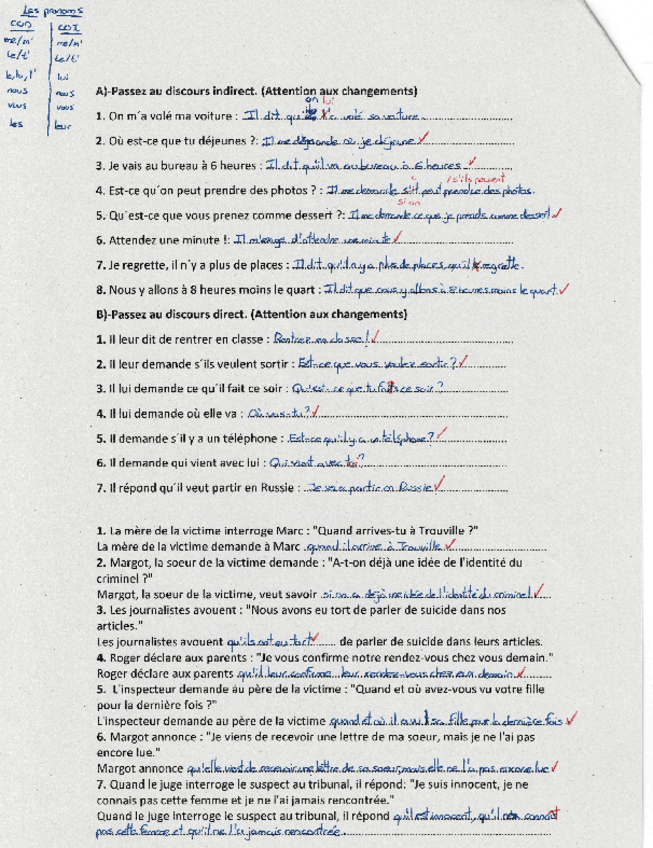 Les pronoms
COD | COI
me/m' | me/m'
te/t' | te/t'
le, la, l' | lui
nous | nous
vous | vous
les | leur
A)-Passez au discours indirect. (Attention aux changements)
on lui
1. On m´a volé ma voiture : Il dit qu' l'a volé sa voiture
2. Où est-ce que tu déjeunes ?: Il me demande où je déjeune ✓
3. Je vais au bureau à 6 heures : Il dit qu'il va au bureau à 6 heures ✓
/s'ils peuvent
4. Est-ce qu´on peut prendre des photos ? : Il me demande s'il peut prendre des photos.
si on
5. Qu´est-ce que vous prenez comme dessert ?: Il me demande ce que je prends comme dessert ✓
6. Attendez une minute !: Il m'exige d'attendre une minute ✓
7. Je regrette, il n´y a plus de places : Il dit qu'il n'y a plus de places, qu'il regrette.
8. Nous y allons à 8 heures moins le quart : Il dit que nous y allons à 8 heures moins le quart ✓
B)-Passez au discours direct. (Attention aux changements)
1. Il leur dit de rentrer en classe : Rentrez en classe! ✓
2. Il leur demande s´ils veulent sortir : Est-ce que vous voulez sortir? ✓
3. Il lui demande ce qu´il fait ce soir : Qu'est-ce que tu fais ce soir?
4. Il lui demande où elle va : Où vas-tu? ✓
5. Il demande s´il y a un téléphone : Est-ce qu'il y a un téléphone? ✓
6. Il demande qui vient avec lui : Qui vient avec ?
7. Il répond qu´il veut partir en Russie : Je partir en Russie ✓
1. La mère de la victime interroge Marc : "Quand arrives-tu à Trouville ?"
La mère de la victime demande à Marc quand il arrive à Trouville ✓
2. Margot, la soeur de la victime demande : "A-t-on déjà une idée de l'identité du
criminel ?"
Margot, la soeur de la victime, veut savoir si on a déjà une idée de l'identité du criminel ✓
3. Les journalistes avouent : "Nous avons eu tort de parler de suicide dans nos
articles."
Les journalistes avouent qu'ils ont eu tort ✓ de parler de suicide dans leurs articles.
4. Roger déclare aux parents : "Je vous confirme notre rendez-vous chez vous demain."
Roger déclare aux parents qu'il leur confirme leur rendez-vous chez eux demain ✓
5. L'inspecteur demande au père de la victime : "Quand et où avez-vous vu votre fille
pour la dernière fois ?"
L'inspecteur demande au père de la victime quand et où il a vu sa fille pour la dernière fois ✓
6. Margot annonce : "Je viens de recevoir une lettre de ma soeur, mais je ne l'ai pas
encore lue."
Margot annonce qu'elle vient de recevoir une lettre de sa soeur, mais elle ne l'a pas encore lue ✓
7. Quand le juge interroge le suspect au tribunal, il répond: "Je suis innocent, je ne
connais pas cette femme et je ne l'ai jamais rencontrée."
Quand le juge interroge le suspect au tribunal, il répond qu'il est innocent, qu'il ne connait
pas cette femme et qu'il ne l'a jamais rencontrée